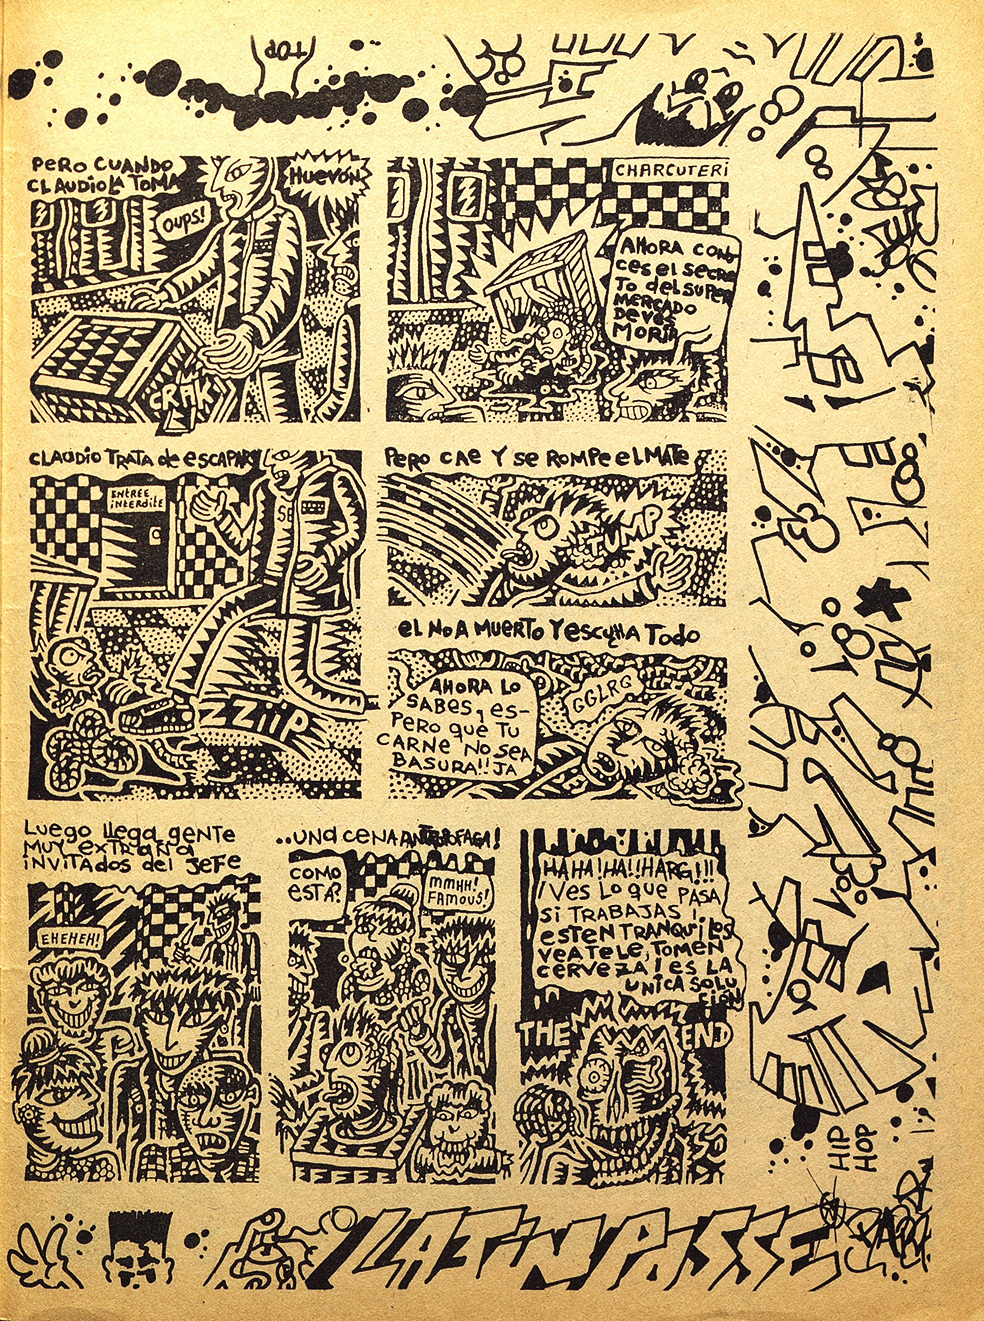 TOP
PERO CUANDO
CLAUDIO LA TOMA
OUPS!
HUEVÓN
CRAK
CHARCUTERI
AHORA CONO
CES EL SECRE
TO del SUPER
MERCADO
DEVES
MORIR
CLAUDIO TRATA de eSCAPAR
ENTRÉE
interdite
SE
ZZIIP
PERO CAE Y SE ROMPE el MATE
TUMP
el NO A MUERTO Y ESCUHA TODO
AHORA LO
SABES, eS-
PERO QUE TU
CARNE NO SEA
BASURA!! JA
GGLRG
LUEGO llega GENTE
MUY EXTRAÑA
INVITADOS del JEFE
EHEHEH!
..UNA CENA ANTROFAGA!
COMO
ESTA?
MMHH!
FAMOUS!
HAHA!HA!!HARG!!!
!Ves LO QUE PASA
Si TRABAJAS!
ESTEN TRANQUiLOS
VEATELE, TOMEN
CERVEZA! ES LA
UNICA SOLU
CIÓN
THE END
HIP
HOP
LATIN PASSE